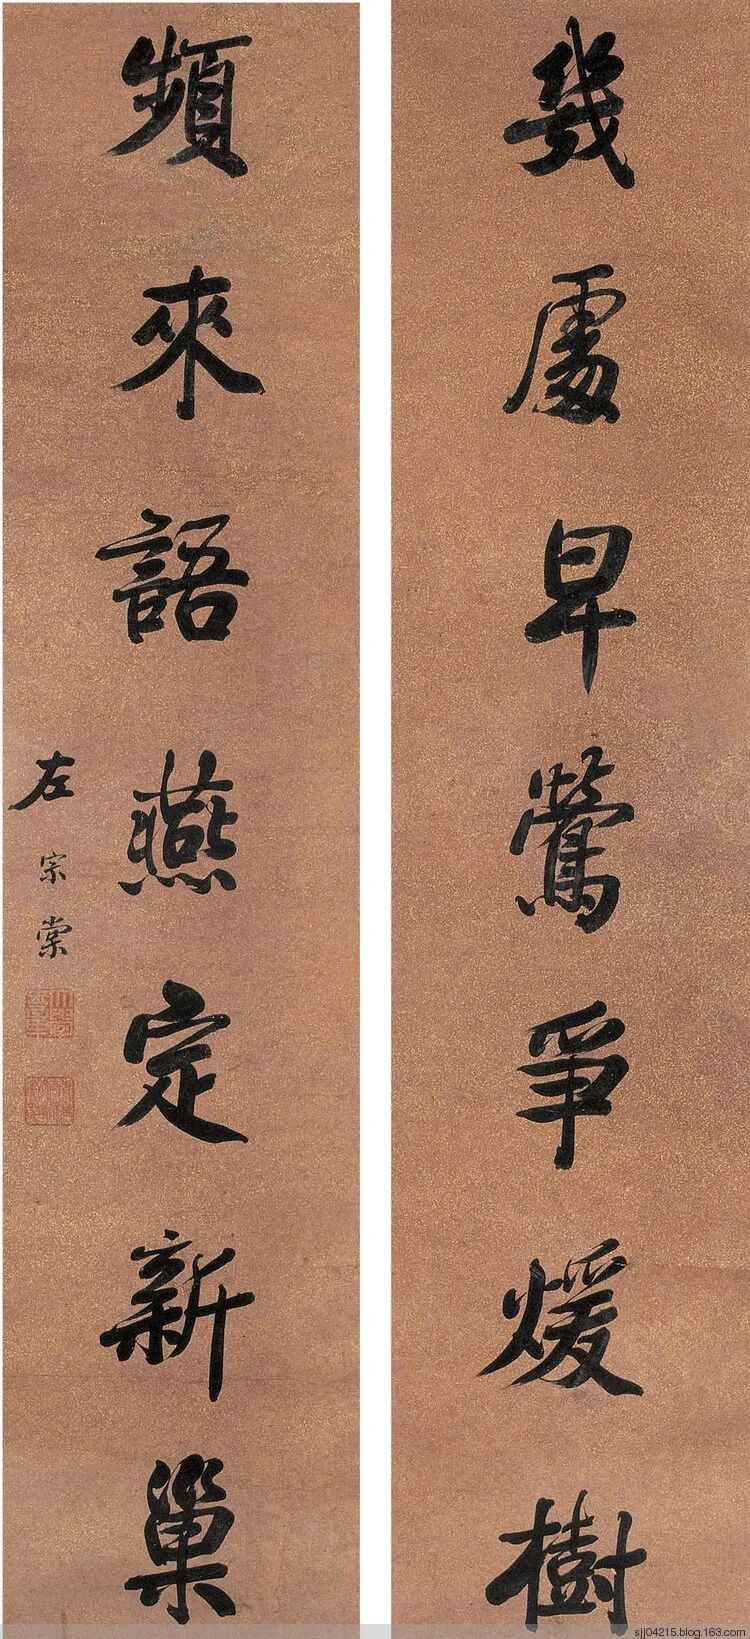 幾處早鶯爭煖樹
頻來語燕定新巢
左宗棠
sjj04215.blog.163.com